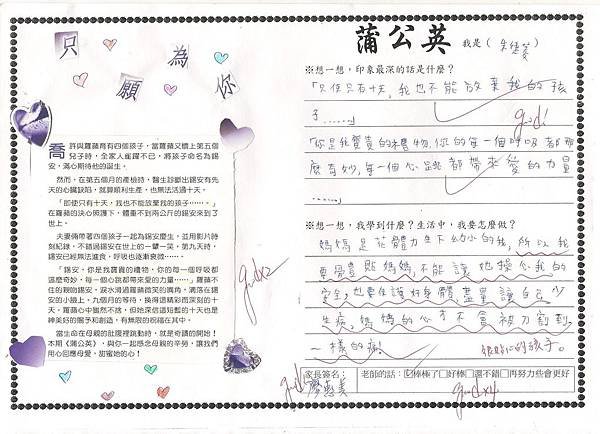 只為
願你
喬許與羅蘋育有四個孩子,當羅蘋又懷上第五個
兒子時,全家人雀躍不已,將孩子命名為錫
安,滿心期待他的誕生。
然而,在第五個月的產檢時,醫生診斷出錫安有先
天的心臟缺陷,就算順利生產,也無法活過十天。
「即使只有十天,我也不能放棄我的孩子……。」
在羅蘋的決心照護下,體重不到兩公斤的錫安來到了
世上。
夫妻倆帶著四個孩子一起為錫安慶生,並用影片時
刻紀錄,不錯過錫安在世上的一顰一笑。第九天時,
錫安已經無法進食,呼吸也逐漸衰微……。
「錫安,你是我寶貴的禮物,你的每一個呼吸都
這麼奇妙,每一個心跳都帶來愛的力量……」羅蘋不
住的親吻錫安,淚水滑過羅蘋微笑的嘴角,滴落在錫安
的小臉上,九個月的等待,換得這精彩而深刻的十
天,羅蘋心中雖然不捨,但她深信這短暫的十天也是
神美好的賜予和創造,有無限的祝福在其中。
當生命在母親的肚腹裡跳動時,就是奇蹟的開始!
本期《蒲公英》,與你一起感念母親的辛勞,讓我們
用心回應母愛,甜蜜她的心!
good×2
蒲公英 我是( )
※想一想,印象最深的話是什麼?
「只使只有十天,我也不能放棄我的孩
子……」
good!
「你是我寶貴的禮物,你的每一個呼吸都那
麼奇妙,每一個心跳都帶來愛的力量
……」
※想一想,我學到什麼?生活中,我要怎麼做?
媽媽是花體力生下幼小的我,所以我
要學習貼媽媽,不能讓她操心我的
安全,也要保護好身體,盡量讓自己少
生病,媽媽的心才不會被刀割到
一樣的痛!
很貼心的孩子。
家長簽名: 老師的話:☑棒棒了□好棒□還不錯□再努力些會更好
廖惠美
good
good×4